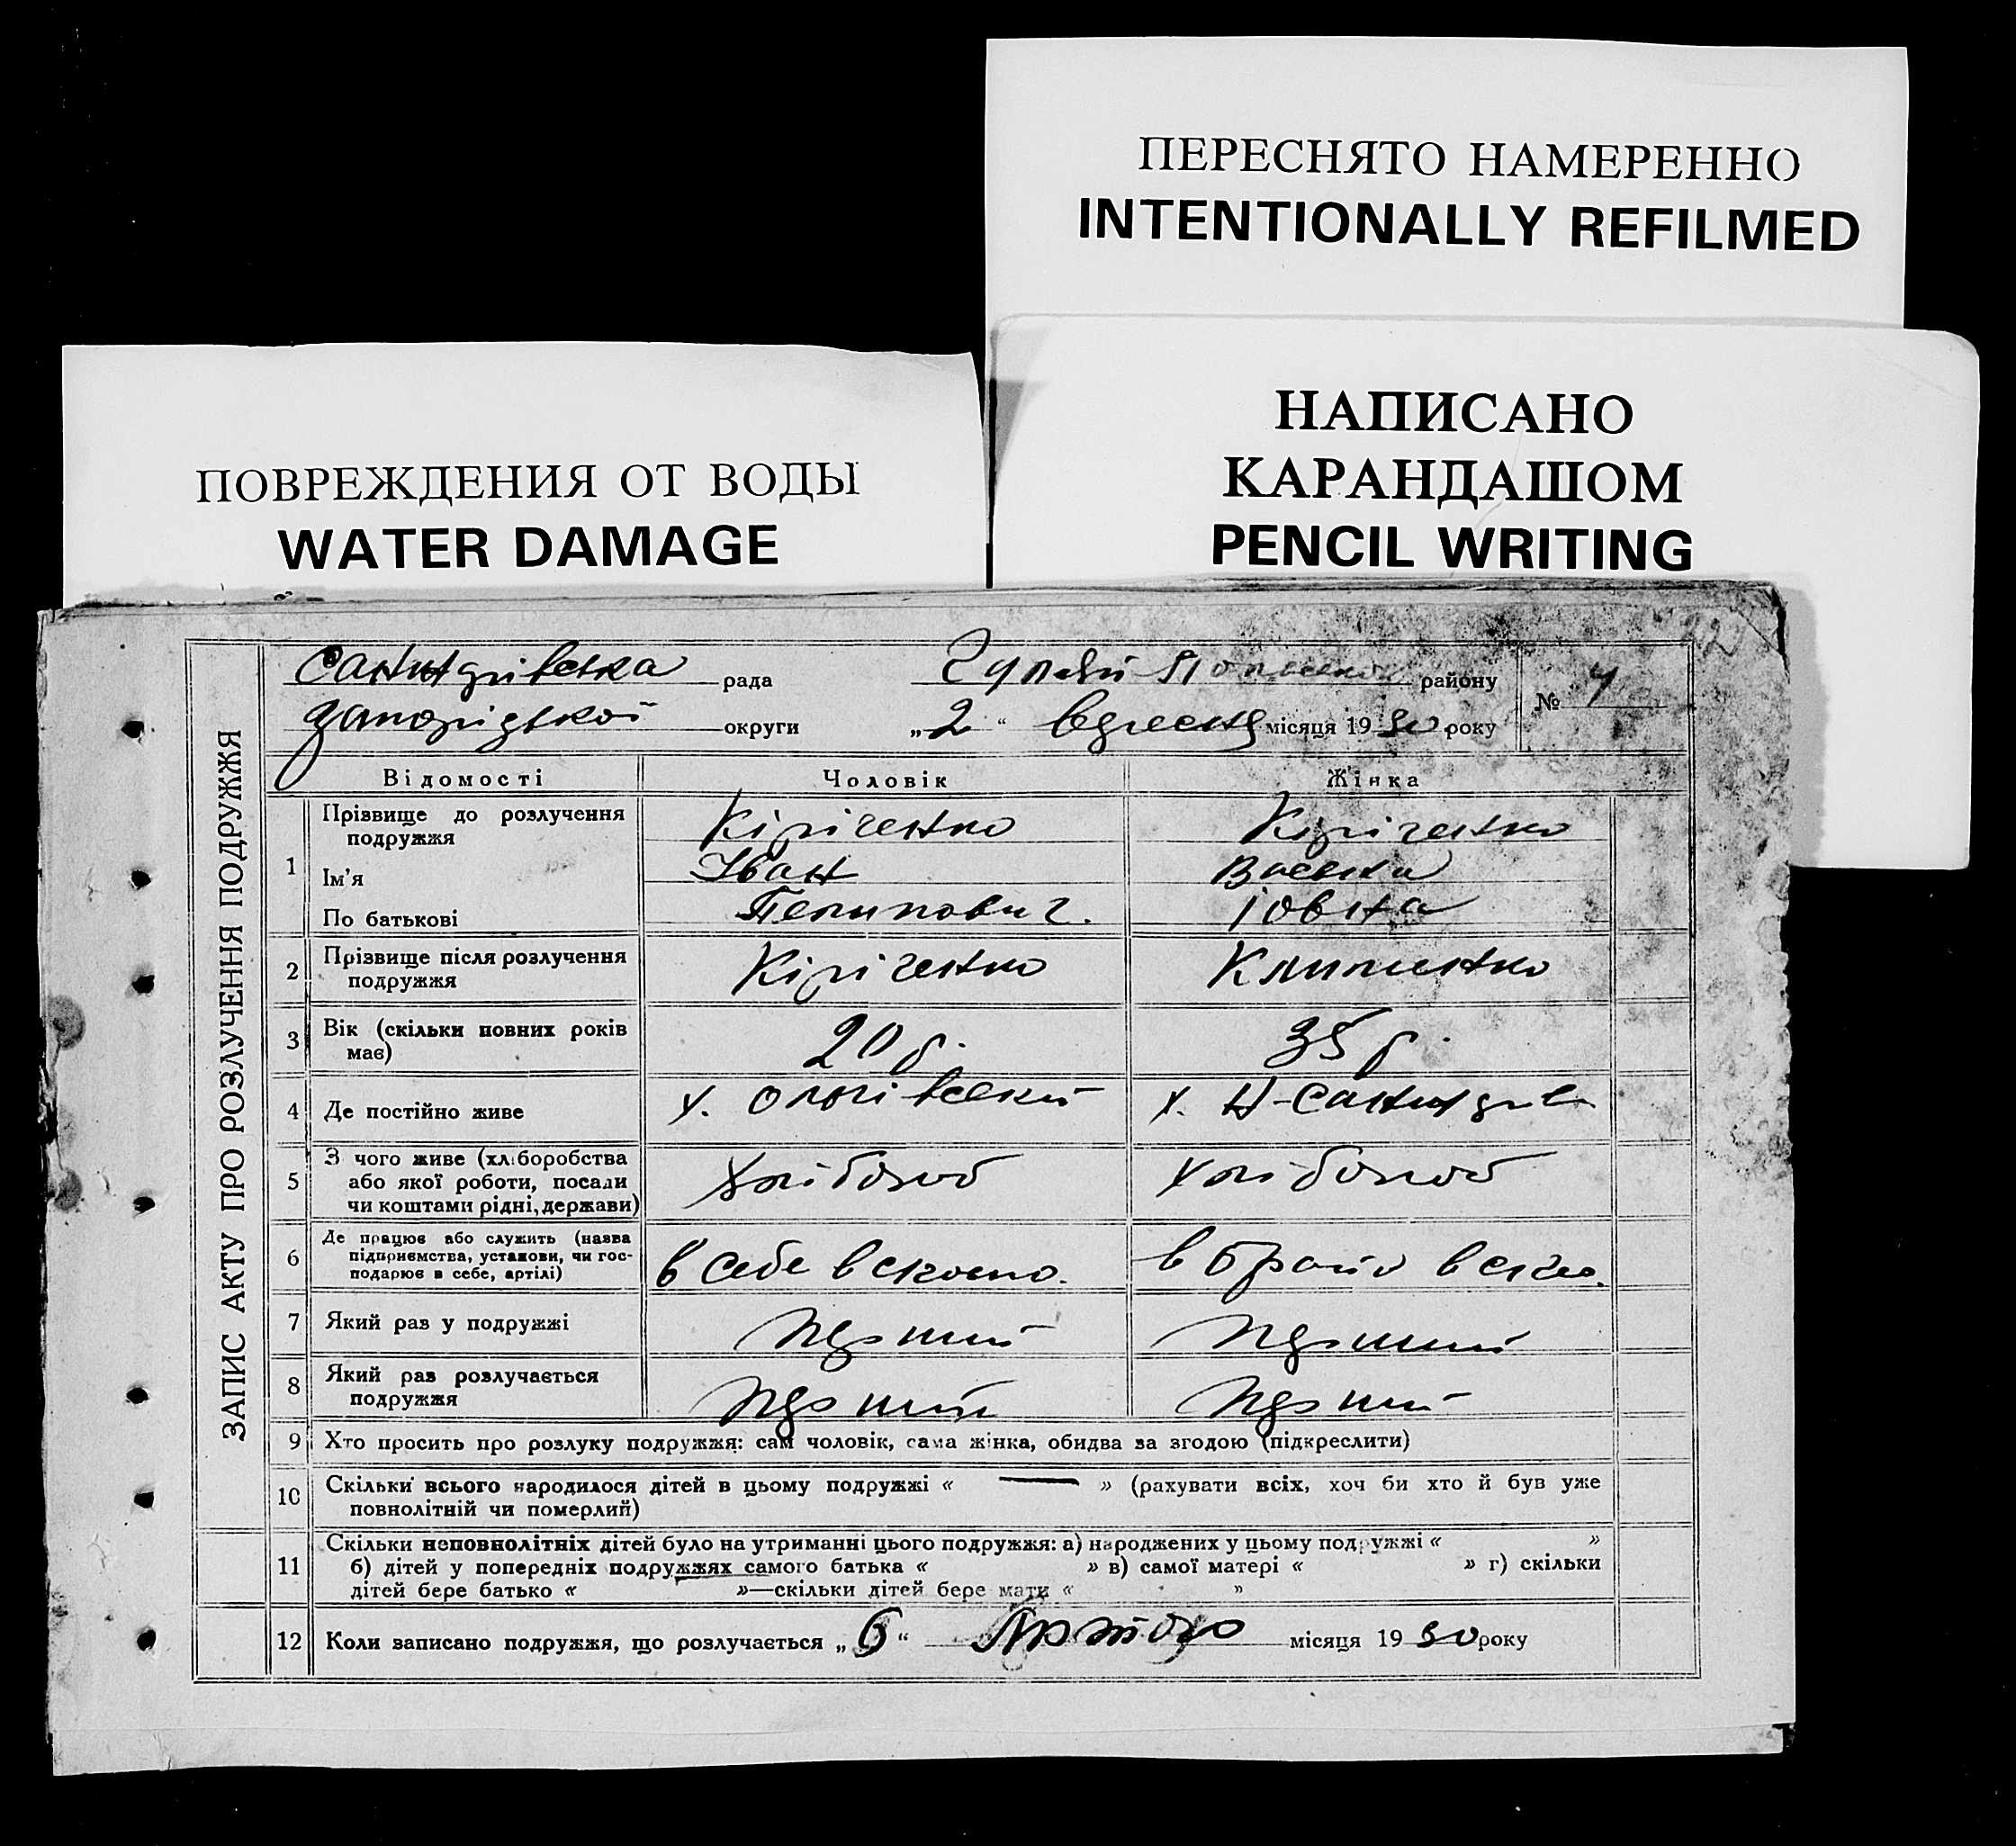 ПЕРЕСНЯТО НАМЕРЕННО
INTENTIONALLY REFILMED
НАПИСАНО
КАРАНДАШОМ
PENCIL WRITING
ПОВРЕЖДЕНИЯ ОТ ВОДЫ
WATER DAMAGE
ЗАПИС АКТУ ПРО РОЗЛУЧЕННЯ ПОДРУЖЖЯ
рада Гуляй-Польського району
Запорізької округи „2“ вересня місяця 1930 року
№
Відомості Чоловік Жінка
1 Прізвище до розлучення подружжя Кіріченко Кіріченко
Ім’я Іван
По батькові Пелипович. Іовна
2 Прізвище після розлучення подружжя Кіріченко Клименко
3 Вік (скільки повних років має) 20 р. 35 р.
4 Де постійно живе х. х.
5 З чого живе (хліборобства або якої роботи, посади чи коштами рідні, держави) хлібороб хлібороб
6 Де працює або служить (назва підприємства, установи, чи господарює в себе, артілі) в себе
7 Який раз у подружжі
8 Який раз розлучається подружжя
9 Хто просить про розлуку подружжя: сам чоловік, сама жінка, обидва за згодою (підкреслити)
10 Скільки всього народилося дітей в цьому подружжі « — » (рахувати всіх, хоч би хто й був уже
повнолітній чи померлий)
11 Скільки неповнолітніх дітей було на утриманні цього подружжя: а) народжених у цьому подружжі « »
б) дітей у попередніх подружжях самого батька « » в) самої матері « » г) скільки
дітей бере батько « »—скільки дітей бере мати « »
12 Коли записано подружжя, що розлучається „6“ Лютого місяця 1930 року